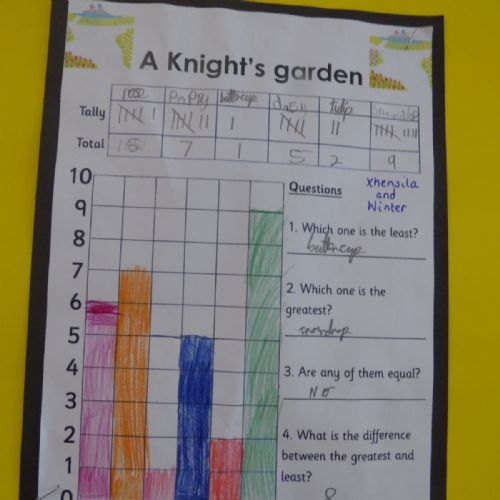 A Knight's garden
rose poppy buttercup daffy tulip snowdrop
Tally
Total 6 7 1 5 2 9
10
9
8
7
6
5
4
3
2
1
0
Questions
Xhensila
and
Winter
1. Which one is the least?
buttercup
2. Which one is the
greatest?
snowdrop
3. Are any of them equal?
No
4. What is the difference
between the greatest and
least?
8